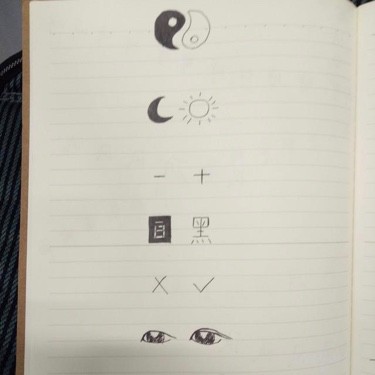 - +
白 黑
X ✓